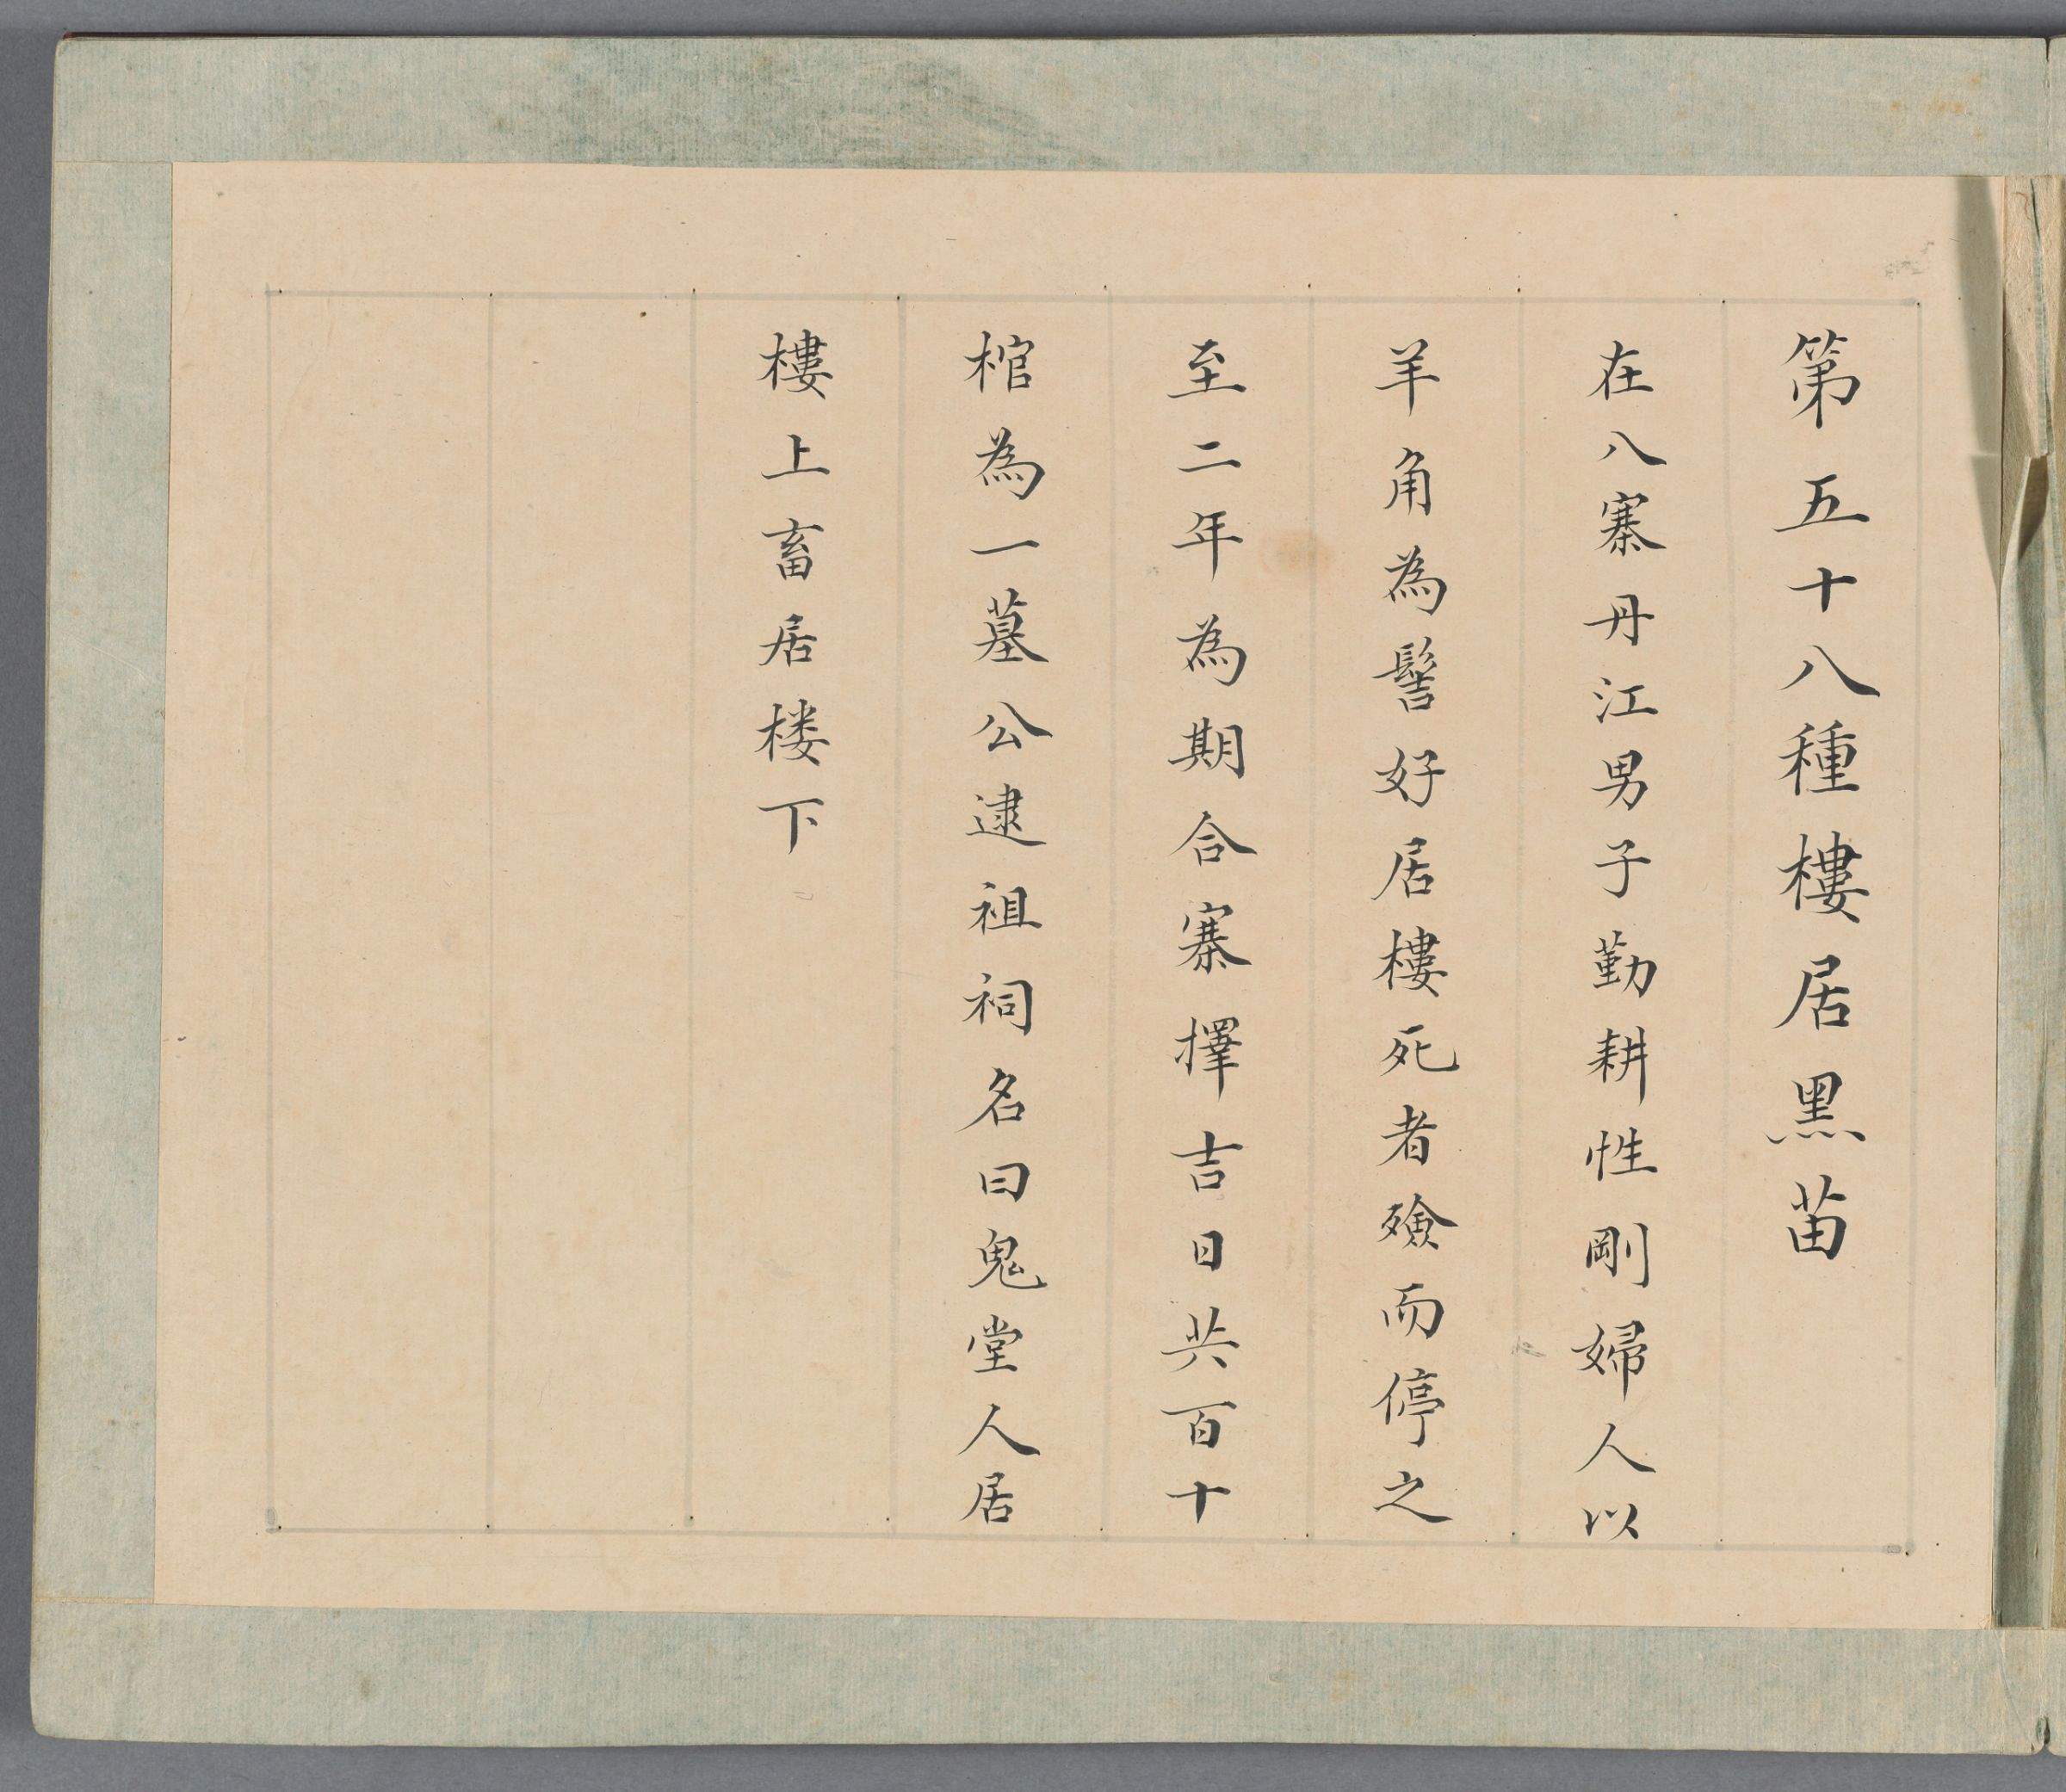 第五十八種樓居黑苗
在八寨丹江男子勤耕性剛婦人以
羊角為髻好居樓死者殮而停之
至二年為期合寨擇吉日共百十
棺為一墓公逮祖祠名曰鬼堂人居
樓上畜居楼下